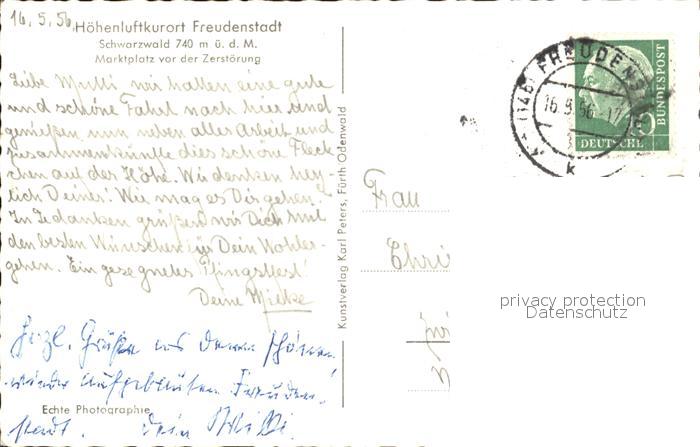 16.5.56.
Höhenluftkurort Freudenstadt
Schwarzwald 740 m ü. d. M.
Marktplatz vor der Zerstörung
Liebe Mutti wir hatten eine gute
und schöne Fahrt nach hier und
genießen nun neben aller Arbeit und
zusammenkünfte dies schöne Fleck
chen auf der Höhe. Wir denken herz-
lich Deiner! Wie mag es Dir gehen.
In Gedanken grüßen wir Dich mit
den besten Wünschen für Dein Wohler-
gehen. Ein gesegnetes Pfingstfest!
Deine Mieke
Herzl. Grüße aus dem schönen
wieder aufgebauten Freuden-
stadt. Dein Willi.
Echte Photographie
Kunstverlag Karl Peters, Fürth Odenwald
FREUDENS
16.5.56.-17
DEUTSCHE
BUNDESPOST
Frau
Chri
privacy protection
Datenschutz